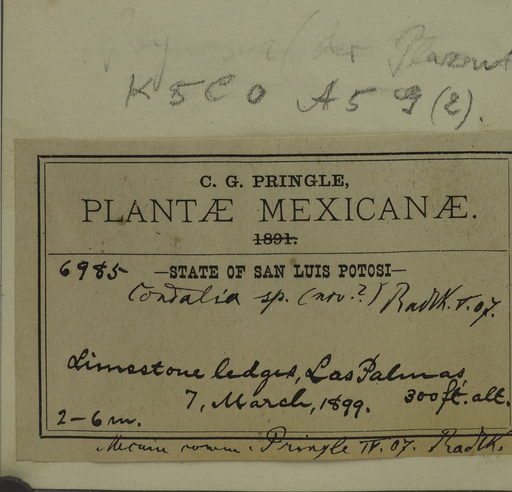 K5C0 A5 G(2).
C. G. PRINGLE,
PLANTÆ MEXICANÆ.
1891.
6985 —STATE OF SAN LUIS POTOSI—
Condalia sp. (nov.?) Radlk. V. 07.
Limestone ledges, Las Palmas,
7, March, 1899. 300 ft. alt.
2–6 m.
comm. Pringle IV. 07. Radlk.